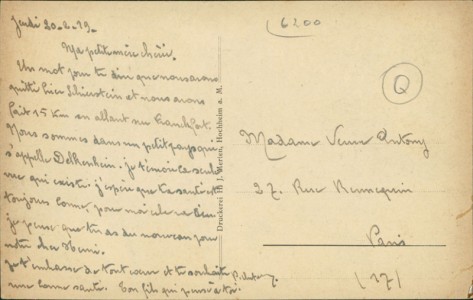 Jeudi 20-2-19.
Ma petite mère chérie.
Un mot pour te dire que nous avons
quitté hier Schierstein et nous avons
fait 15 Km en allant sur Francfort.
Nous sommes dans un petit pays qui
s'appelle Delkenheim. je t'envoie la seule
vue qui existe. j'espère que ta santé est
toujours bonne, pour moi cela va bien
je pense que tu as du nouveau pour
notre cher Henri.
Je t'embrasse de tout cœur et te souhaite
une bonne santé. Ton fils qui pense à toi.
P. Antony.
Druckerei Th. J. Merten, Hochheim a. M.
6200
Q
Madame Veuve Antony
27. Rue Rennequin
Paris
(17)